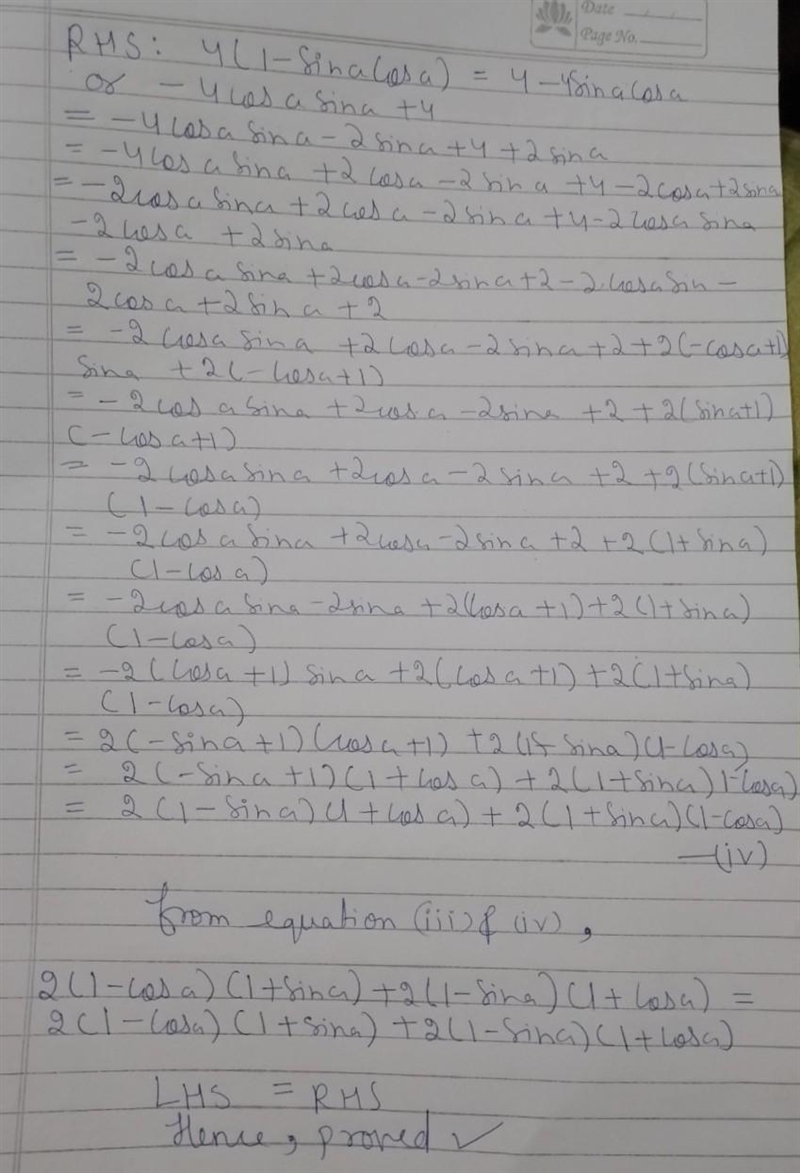 Date
Page No.
RHS: 4(1-Sina Cosa) = 4-4sina Cosa
or -4cosa sina +4
= -4cosa sina -2sina +4 +2sina
= -4cosa sina +2cosa -2sina +4 -2cosa +2sina
= -2cosa sina +2cosa -2sina +4 -2cosa sina
-2cosa +2sina
= -2cosa sina +2cosa -2sina +2 -2.cosa sin -
2cosa +2sina +2
= -2cosa sina +2cosa -2sina +2 +2(-cosa+1)
sina +2(-cosa+1)
= -2cosa sina +2cosa -2sina +2 +2(sina+1)
(-cosa+1)
= -2cosa sina +2cosa -2sina +2 +2(sina+1)
(1-cosa)
= -2cosa sina +2cosa -2sina +2 +2(1+sina)
(1-cosa)
= -2cosa sina -2sina +2(cosa+1) +2(1+sina)
(1-cosa)
= -2(cosa+1) sina +2(cosa+1) +2(1+sina)
(1-cosa)
= 2(-sina+1)(cosa+1) +2(1+sina)(1-cosa)
= 2(-sina+1)(1+cosa) +2(1+sina)1-cosa)
= 2(1-sina)(1+cosa) +2(1+sina)(1-cosa)
—(iv)
from equation (iii) & (iv),
2(1-cosa)(1+sina)+2(1-sina)(1+cosa) =
2(1-cosa)(1+sina)+2(1-sina)(1+cosa)
LHS = RHS
Hence, proved ✓